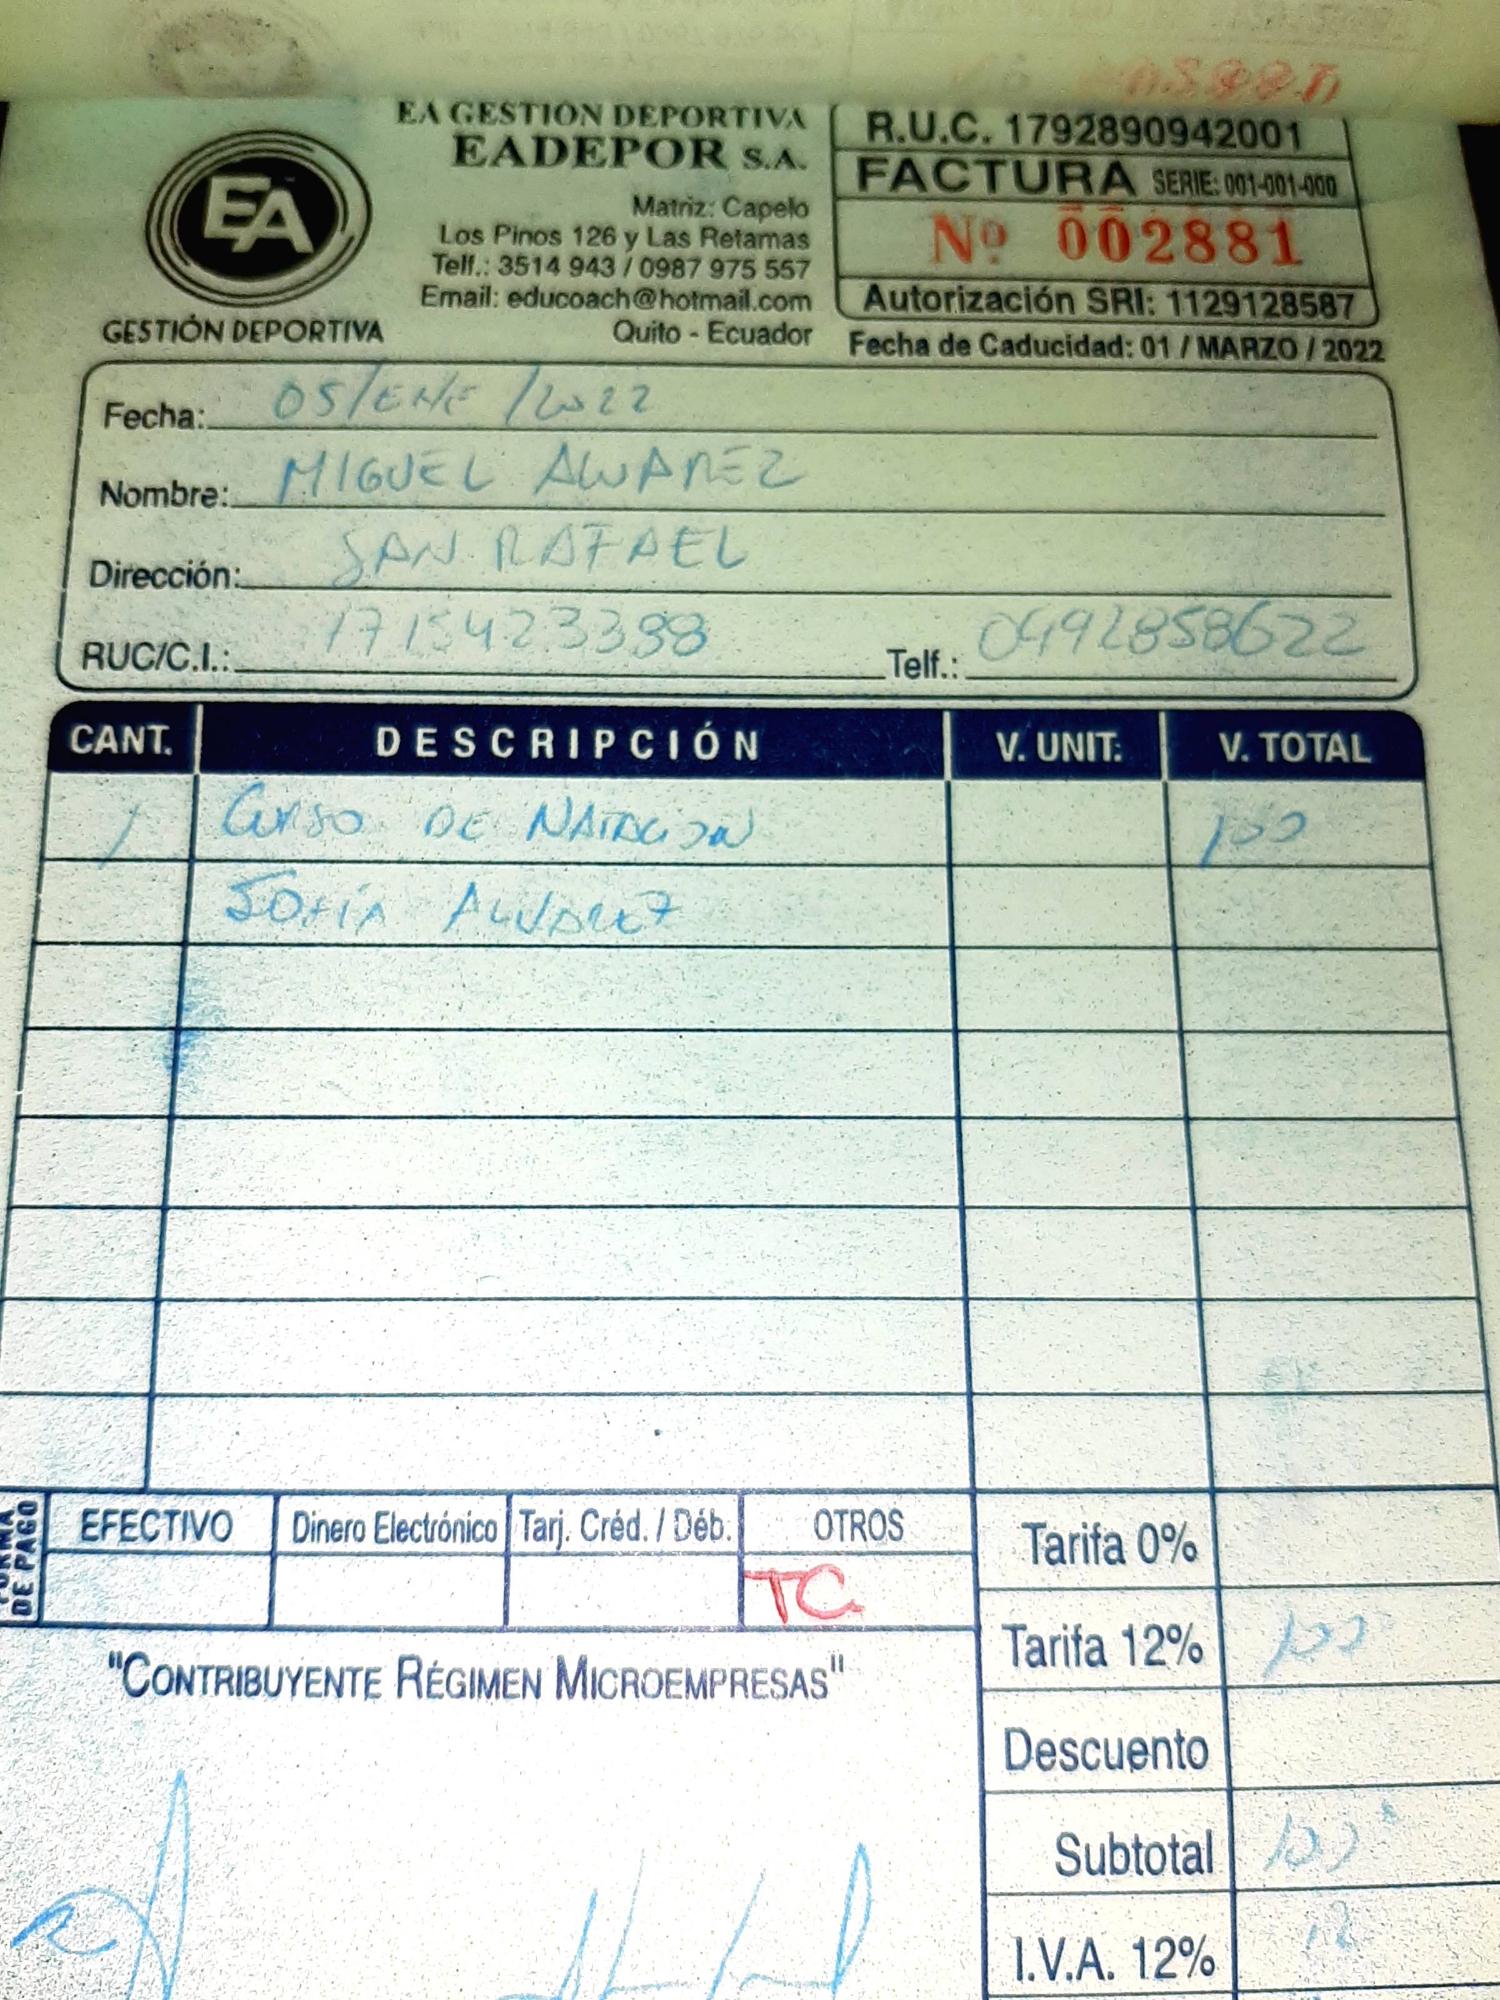 EA GESTION DEPORTIVA
EADEPOR S.A.
Matriz: Capelo
Los Pinos 126 y Las Retamas
Telf.: 3514 943 / 0987 975 557
Email: educoach@hotmail.com
Quito - Ecuador
EA
GESTIÓN DEPORTIVA
R.U.C. 1792890942001
FACTURA SERIE: 001-001-000
Nº 002881
Autorización SRI: 1129128587
Fecha de Caducidad: 01 / MARZO / 2022
Fecha: 05/ENE/2022
Nombre: MIGUEL ALVAREZ
Dirección: SAN RAFAEL
RUC/C.I.: 1715423388 Telf.: 0992858622
CANT. DESCRIPCIÓN V. UNIT. V. TOTAL
1 CURSO DE NATACION 100
SOFÍA ALVAREZ
FORMA DE PAGO
EFECTIVO Dinero Electrónico Tarj. Créd. / Déb. OTROS
TC
Tarifa 0%
Tarifa 12% 100
Descuento
Subtotal 100
I.V.A. 12% 12
"CONTRIBUYENTE RÉGIMEN MICROEMPRESAS"